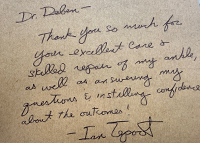 Dr. Dalen —
Thank you so much for
your excellent care &
skilled repair of my ankle,
as well as answering my
questions & instilling confidence
about the outcomes!
— Ian